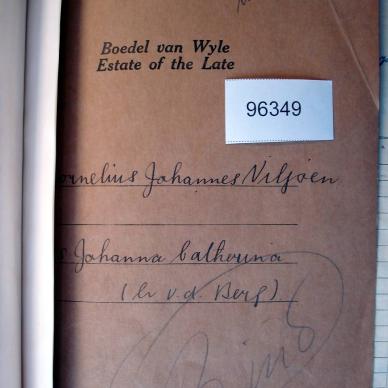 Boedel van Wyle
Estate of the Late
96349
Cornelius Johannes Viljoen
Johanna Catherina
v.d. Berg)